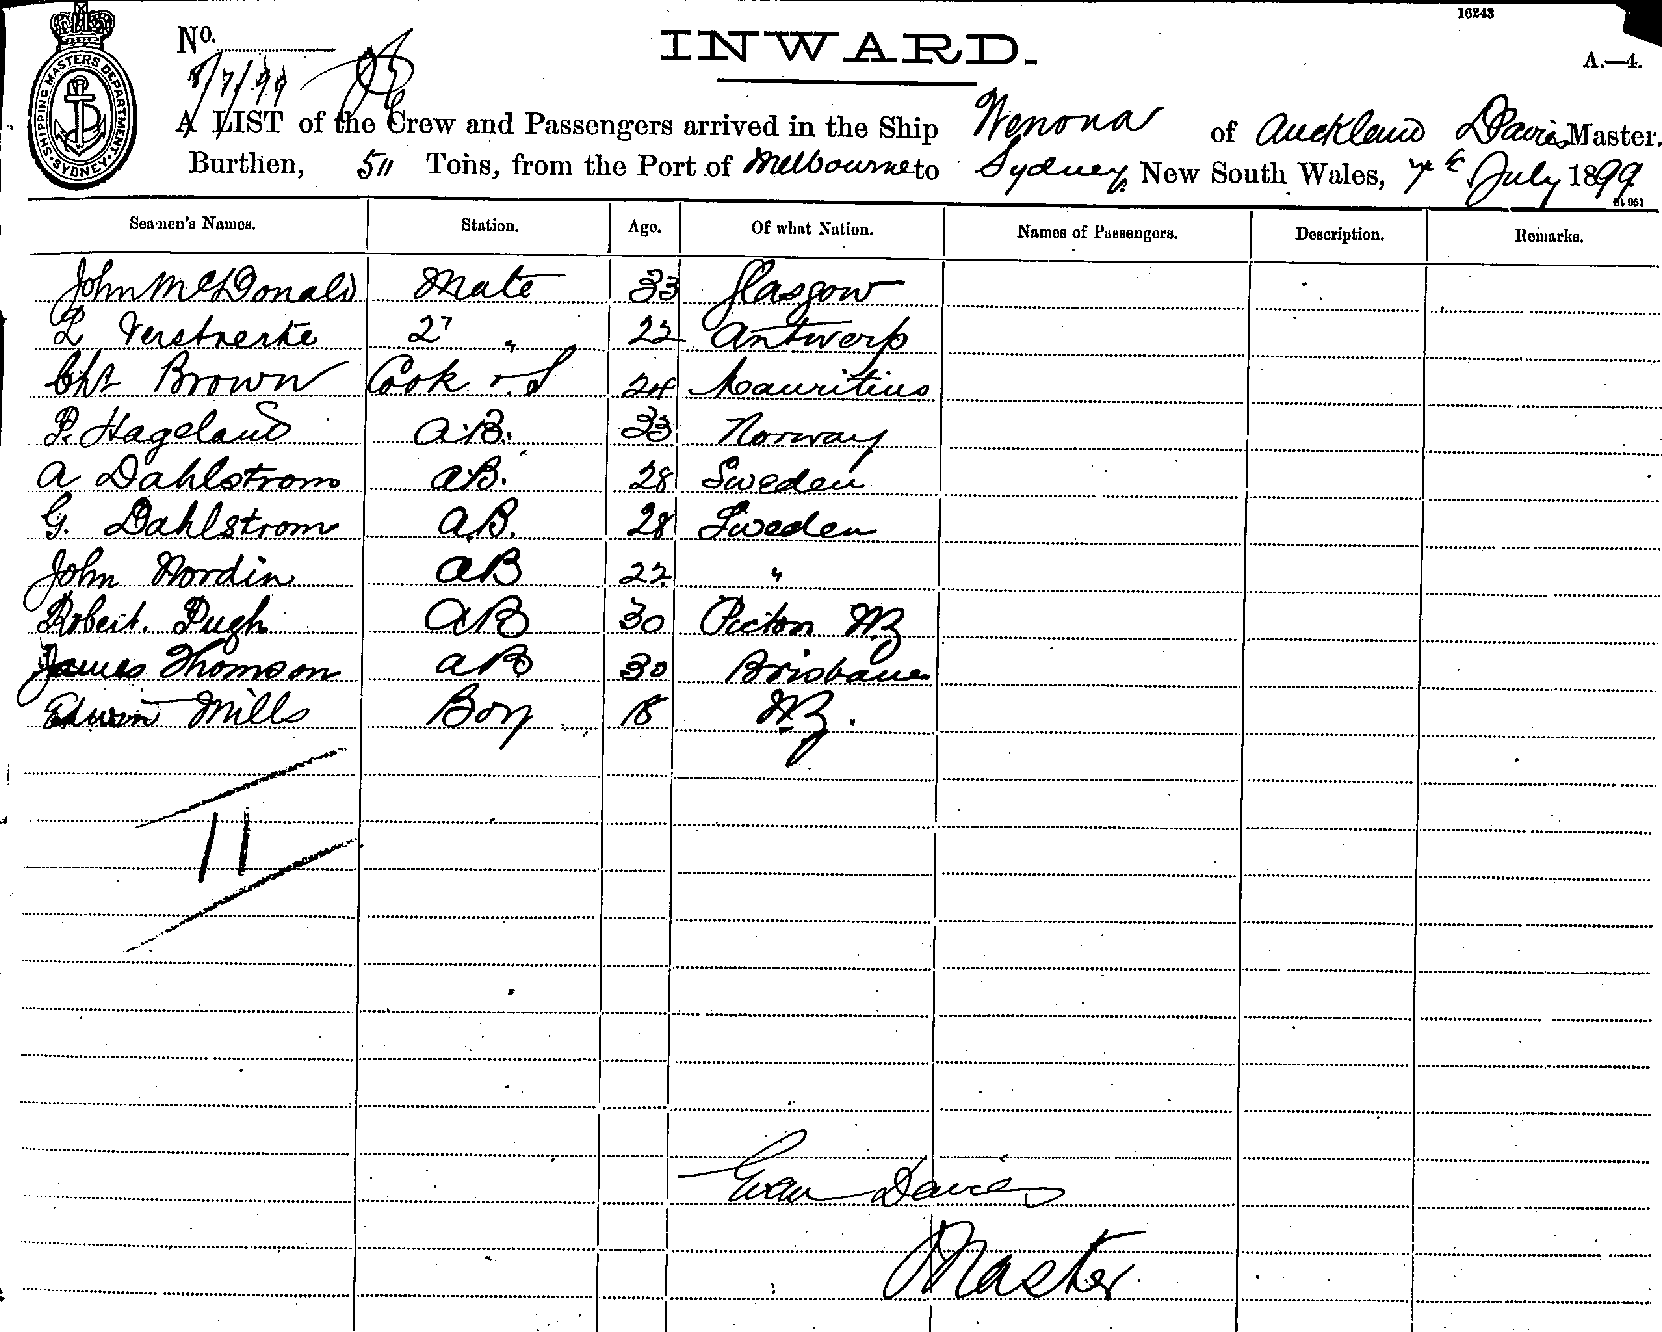 16243
No.
INWARD.
A.—4.
8/7/99
SHIPPING MASTERS DEPARTMENT SYDNEY
A LIST of the Crew and Passengers arrived in the Ship Wenona of Auckland Davies Master.
Burthen, 511 Tons, from the Port of Melbourne to Sydney, New South Wales, 7th July 1899
Seamen's Names. Station. Age. Of what Nation. Names of Passengers. Description. Remarks.
John McDonald Mate 33 Glasgow
L Verstraerte 2" " 22 Antwerp
Chs Brown Cook & S 24 Mauritius
P. Hageland A.B. 33 Norway
A Dahlstrom AB. 28 Sweden
G. Dahlstrom A.B. 28 Sweden
John Nordin AB 22 "
Robert. Pugh AB 30 Picton NZ
James Thomson AB 30 Brisbane
Edwin Mills Boy 18 NZ.
11
Evan Davies
Master